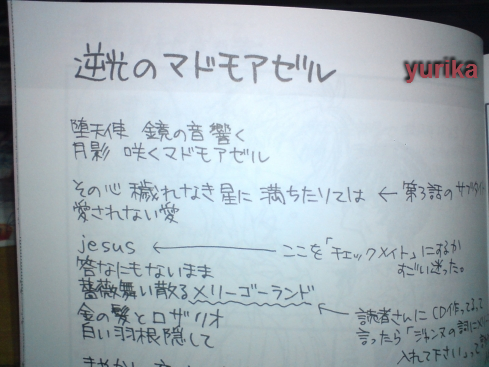 逆光のマドモアゼル
yurika
堕天使 鏡の音響く
月影 咲くマドモアゼル
その心 穢れなき星に 満ちたりては ← 第3話のサブタイ
愛されない愛
jesus ← ここを「チェックメイト」にするか
すごい迷った。
答なにもないまま
薔薇舞い散るメリーゴーランド
金の髪とロザリオ
白い羽根隠して
読者さんにCD作ってるって
言ったら「ジャンヌの詞にメリー
入れて下さい」って